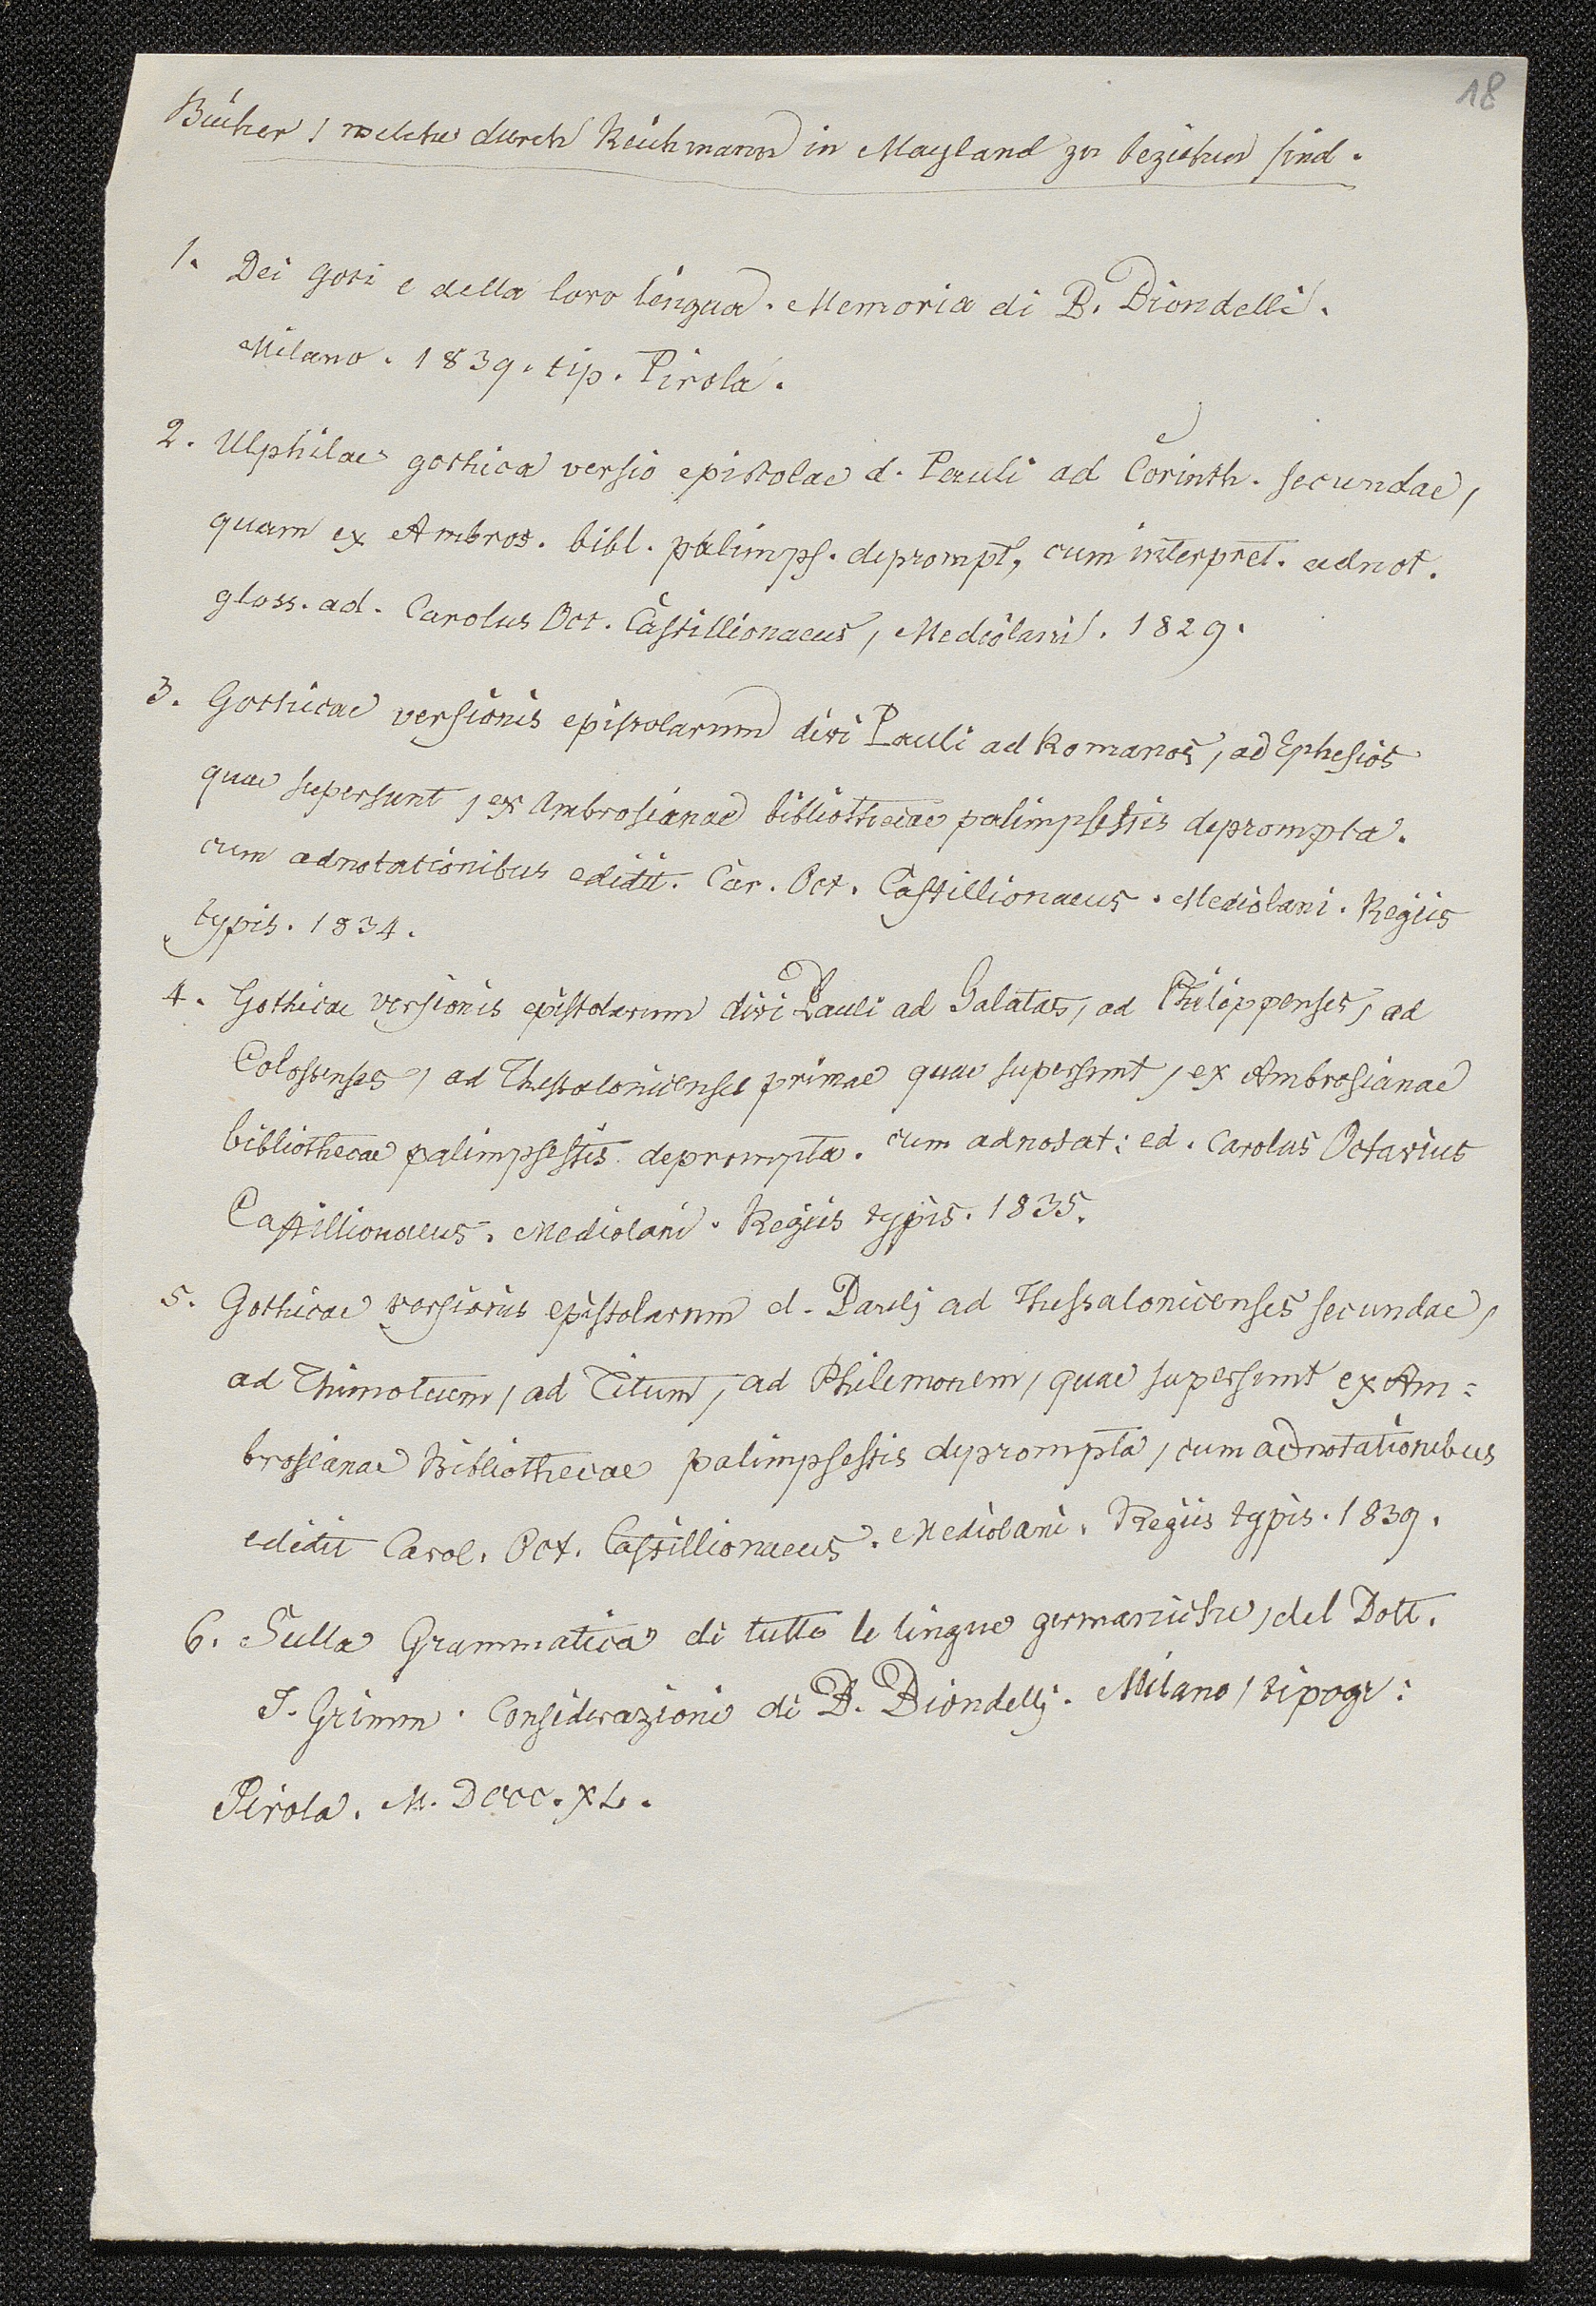 18
Bücher, welche durch Reichmann in Mayland zu beziehen sind.
1. Dei Goti e della loro lingua. Memoria di B. Biondelli.
Milano. 1839. tip. Pirola.
2. Ulphilae gothica versio epistolae d. Pauli ad Corinth. secundae,
quam ex Ambros. bibl. palimps. deprompt, cum interpret. adnot.
gloss. ad. Carolus Oct. Castillionaeus, Mediolani. 1829.
3. Gothicae versionis epistolarum divi Pauli ad Romanos, ad Ephesios
quae supersunt, ex Ambrosianae bibliothecae palimpsestis deprompta.
cum adnotationibus edidit. Car. Oct. Castillionaeus. Mediolani. Regiis
typis. 1834.
4. Gothicae versionis epistolarum divi Pauli ad Galatas, ad Philippenses, ad
Colossenses, ad Thessalonicenses primae quae supersunt, ex Ambrosianae
bibliothecae palimpsestis deprompta. cum adnotat: ed. Carolus Octavius
Castillionaeus. Mediolani. Regiis typis. 1835.
5. Gothicae versionis epistolarum d. Paulj ad Thessalonicenses secundae,
ad Thimoteum, ad Titum, ad Philemonem, quae supersunt ex Am=
brosianae Bibliothecae palimpsestis deprompta, cum adnotationibus
edidit Carol. Oct. Castillionaeus. Mediolani. Regiis typis. 1839.
6. Sulla Grammatica di tutte le lingue germaniche, del Dott.
J. Grimm. Considerazioni di B. Biondellj. Milano, tipogr:
Pirola. M. DCCC. XL.